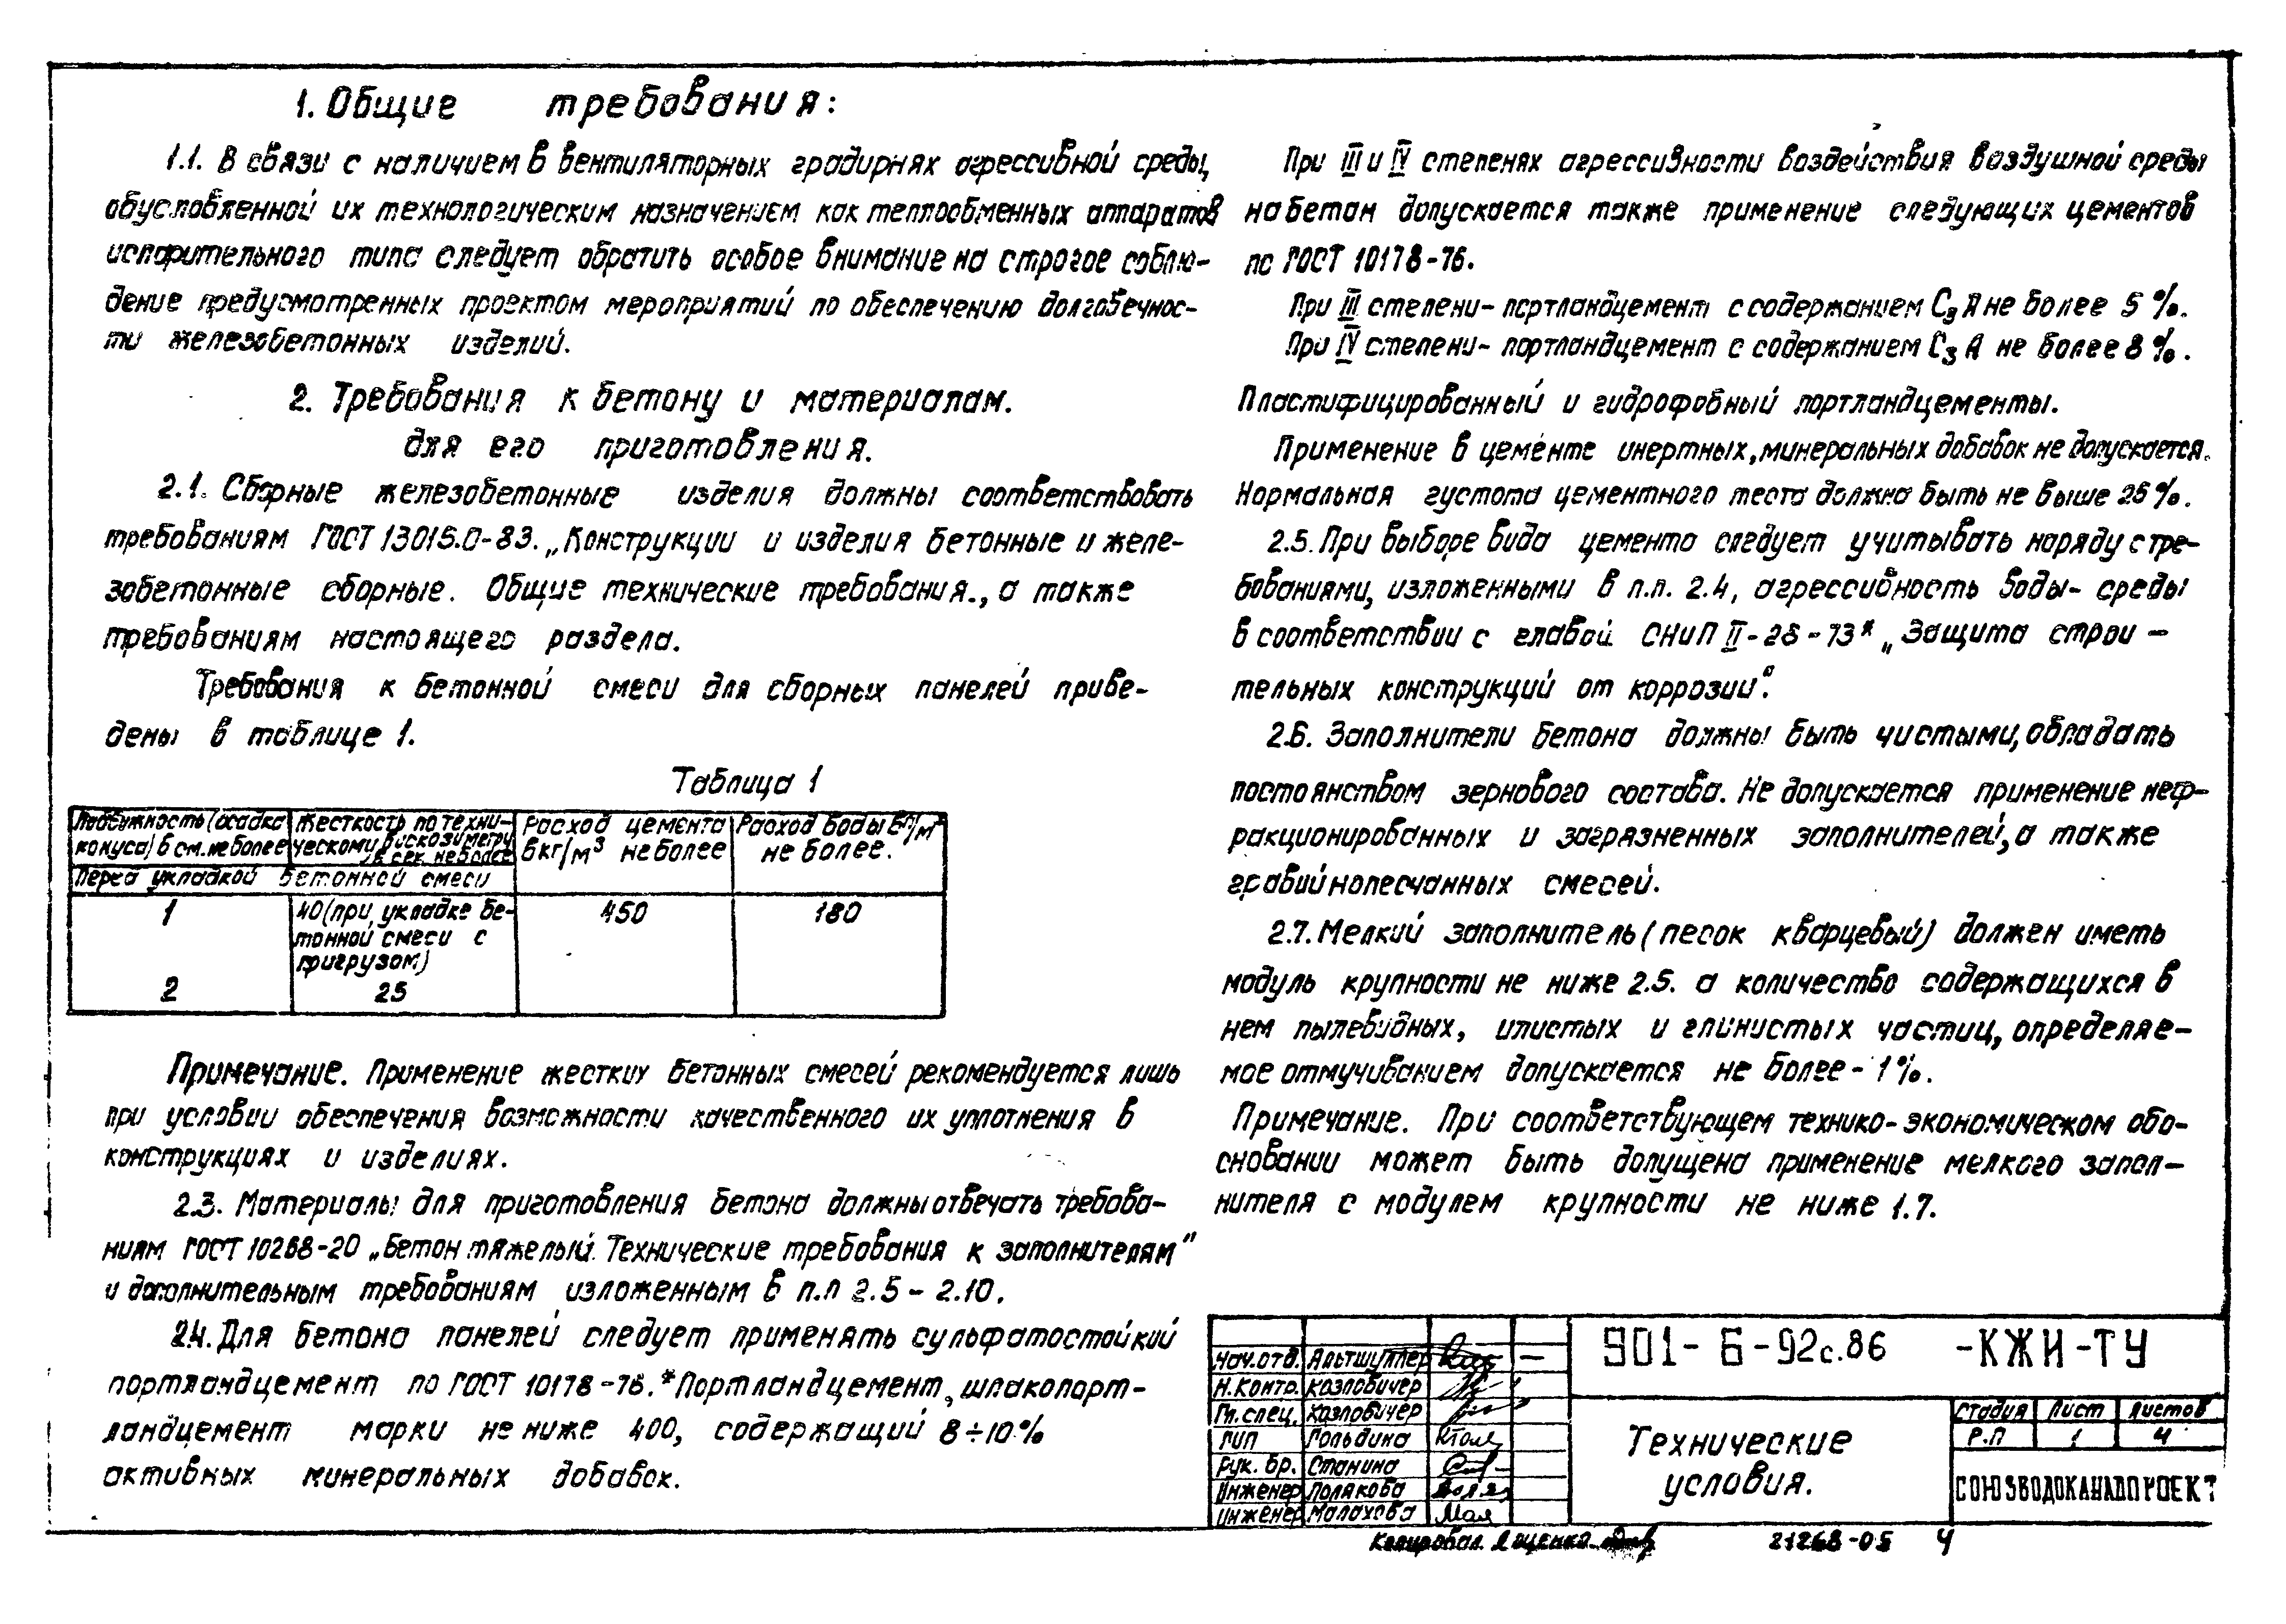 1. Общие требования:
1.1. В связи с наличием в вентиляторных градирнях агрессивной среды,
обусловленной их технологическим назначением как теплообменных аппаратов
испарительного типа следует обратить особое внимание на строгое соблю-
дение предусмотренных проектом мероприятий по обеспечению долговечнос-
ти железобетонных изделий.
2. Требования к бетону и материалам.
для его приготовления.
2.1. Сборные железобетонные изделия должны соответствовать
требованиям ГОСТ 13015.0-83. „Конструкции и изделия бетонные и желе-
зобетонные сборные. Общие технические требования., а также
требованиям настоящего раздела.
Требования к бетонной смеси для сборных панелей приве-
дены в таблице 1.
Таблица 1
Подвижность (осадка
конуса) в см. не более
Жесткость по техни-
ческому вискозиметру
в сек. не более
Расход цемента
в кг/м³ не более
Расход воды в л/м³
не более.
Перед укладкой бетонной смеси
1 40 (при укладке бе- 450 180
тонной смеси с
пригрузом)
2 25
Примечание. Применение жестких бетонных смесей рекомендуется лишь
при условии обеспечения возможности качественного их уплотнения в
конструкциях и изделиях.
2.3. Материалы для приготовления бетона должны отвечать требова-
ниям ГОСТ 10268-20 „Бетон тяжелый. Технические требования к заполнителям"
и дополнительным требованиям изложенным в п.п 2.5 - 2.10.
2.4. Для бетона панелей следует применять сульфатостойкий
портландцемент по ГОСТ 10178-76.* Портландцемент, шлакопорт-
ландцемент марки не ниже 400, содержащий 8÷10%
активных минеральных добавок.
При III и IV степенях агрессивности воздействия воздушной среды
на бетон допускается также применение следующих цементов
по ГОСТ 10178-76.
При III степени- портландцемент с содержанием С₃А не более 5%.
При IV степени- портландцемент с содержанием С₃А не более 8%.
Пластифицированный и гидрофобный портландцементы.
Применение в цементе инертных, минеральных добавок не допускается.
Нормальная густота цементного теста должна быть не выше 25%.
2.5. При выборе вида цемента следует учитывать наряду с тре-
бованиями, изложенными в п.п. 2.4, агрессивность воды- среды
в соответствии с главой СНиП II-28-73* „Защита строи-
тельных конструкций от коррозии".
2.6. Заполнители бетона должны быть чистыми, обладать
постоянством зернового состава. Не допускается применение неф-
ракционированных и загрязненных заполнителей, а также
гравийнопесчанных смесей.
2.7. Мелкий заполнитель (песок кварцевый) должен иметь
модуль крупности не ниже 2.5. а количество содержащихся в
нем пылевидных, илистых и глинистых частиц, определяе-
мое отмучиванием допускается не более - 1%.
Примечание. При соответствующем технико-экономическом обо-
сновании может быть допущена применение мелкого запол-
нителя с модулем крупности не ниже 1.7.
Нач. отд. Альтшуллер
Н. Контр. Козловичер
Гл. спец. Козловичер
ГИП Гольдина
Рук. бр. Станина
Инженер Полякова
Инженер Малахова
901-6-92с.86 -КЖИ-ТУ
Технические
условия.
Стадия Лист Листов
Р.П 1 4
СОЮЗВОДОКАНАЛПРОЕКТ
Копировал Яценко
21268-05 4